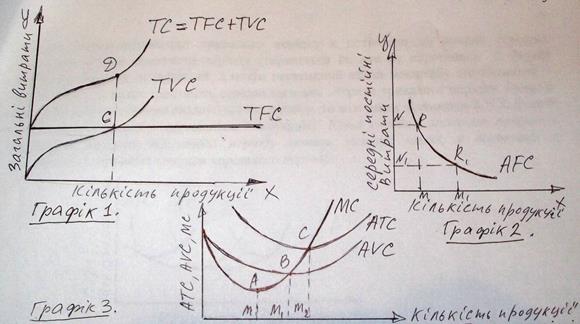 У
TC=TFC+TVC
D
TVC
TFC
G
Загальні витрати
Кількість продукції X
Графік 1.
У
Середні постійні
витрати
N
R
N1
R1
AFC
M
M1
X
Кількість продукції
Графік 2.
ATC, AVC, MC
MC
ATC
AVC
C
B
A
M
M1
M2
Кількість продукції
Графік 3.